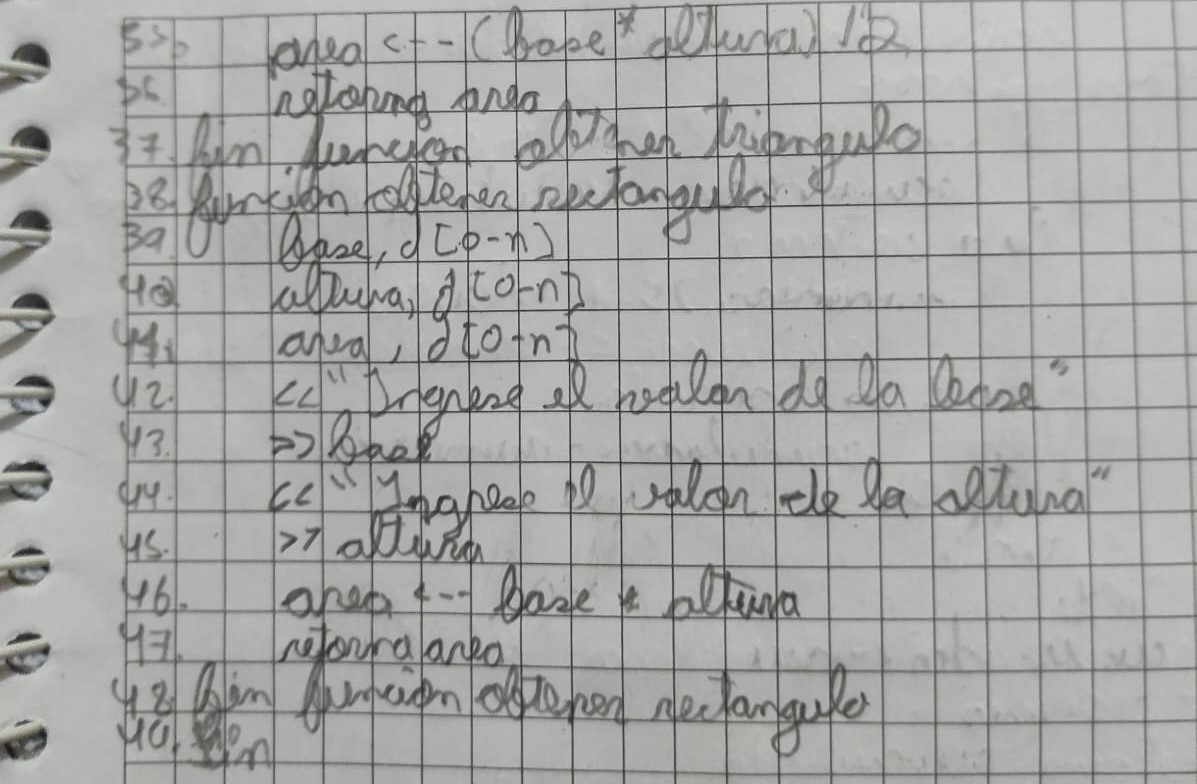 35. area <-- (base * altura) / 2
36 retorna area
37. fin función obtener triangulo
38. función obtener rectangulo.
39. base, d [0-n]
40. altura, d [0-n]
41. area, d [0-n]
42. << "Ingrese el valor de la base"
43. >> base
44. << "Ingrese el valor de la altura"
45. >> altura
46. area <-- base * altura
47. retorna area
48. fin función obtener rectangulo
49. fin